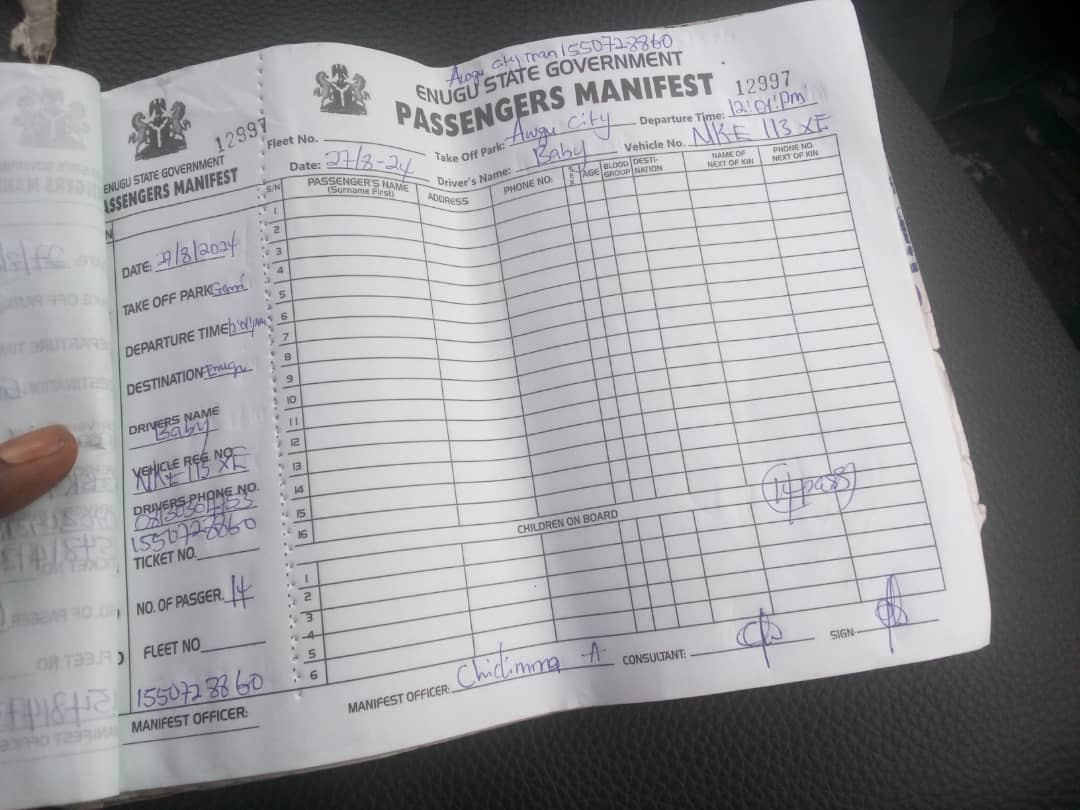 12997
ENUGU STATE GOVERNMENT
PASSENGERS MANIFEST
DATE: 27/8/2024
TAKE OFF PARK
DEPARTURE TIME
DESTINATION Enugu
DRIVERS NAME
Baby
VEHICLE REG. NO.
NKE 113 XE
DRIVERS PHONE NO.
1550728860
TICKET NO.
NO. OF PASGER. 14
FLEET NO
1550728860
MANIFEST OFFICER:
Awgu city tran 1550728860
ENUGU STATE GOVERNMENT
PASSENGERS MANIFEST 12997
Fleet No. Take Off Park: Awgu City Departure Time: 12:01:pm
Date: 27/8-24 Driver's Name: Baby Vehicle No. NKE 113 XE
S/N PASSENGER'S NAME (Surname First) ADDRESS PHONE NO. SEX AGE BLOOD GROUP DESTI-NATION NAME OF NEXT OF KIN PHONE NO. NEXT OF KIN
1
2
3
4
5
6
7
8
9
10
11
12
13
14
15
16
14 pass
CHILDREN ON BOARD
1
2
3
4
5
6
MANIFEST OFFICER: Chidimma A. CONSULTANT: SIGN